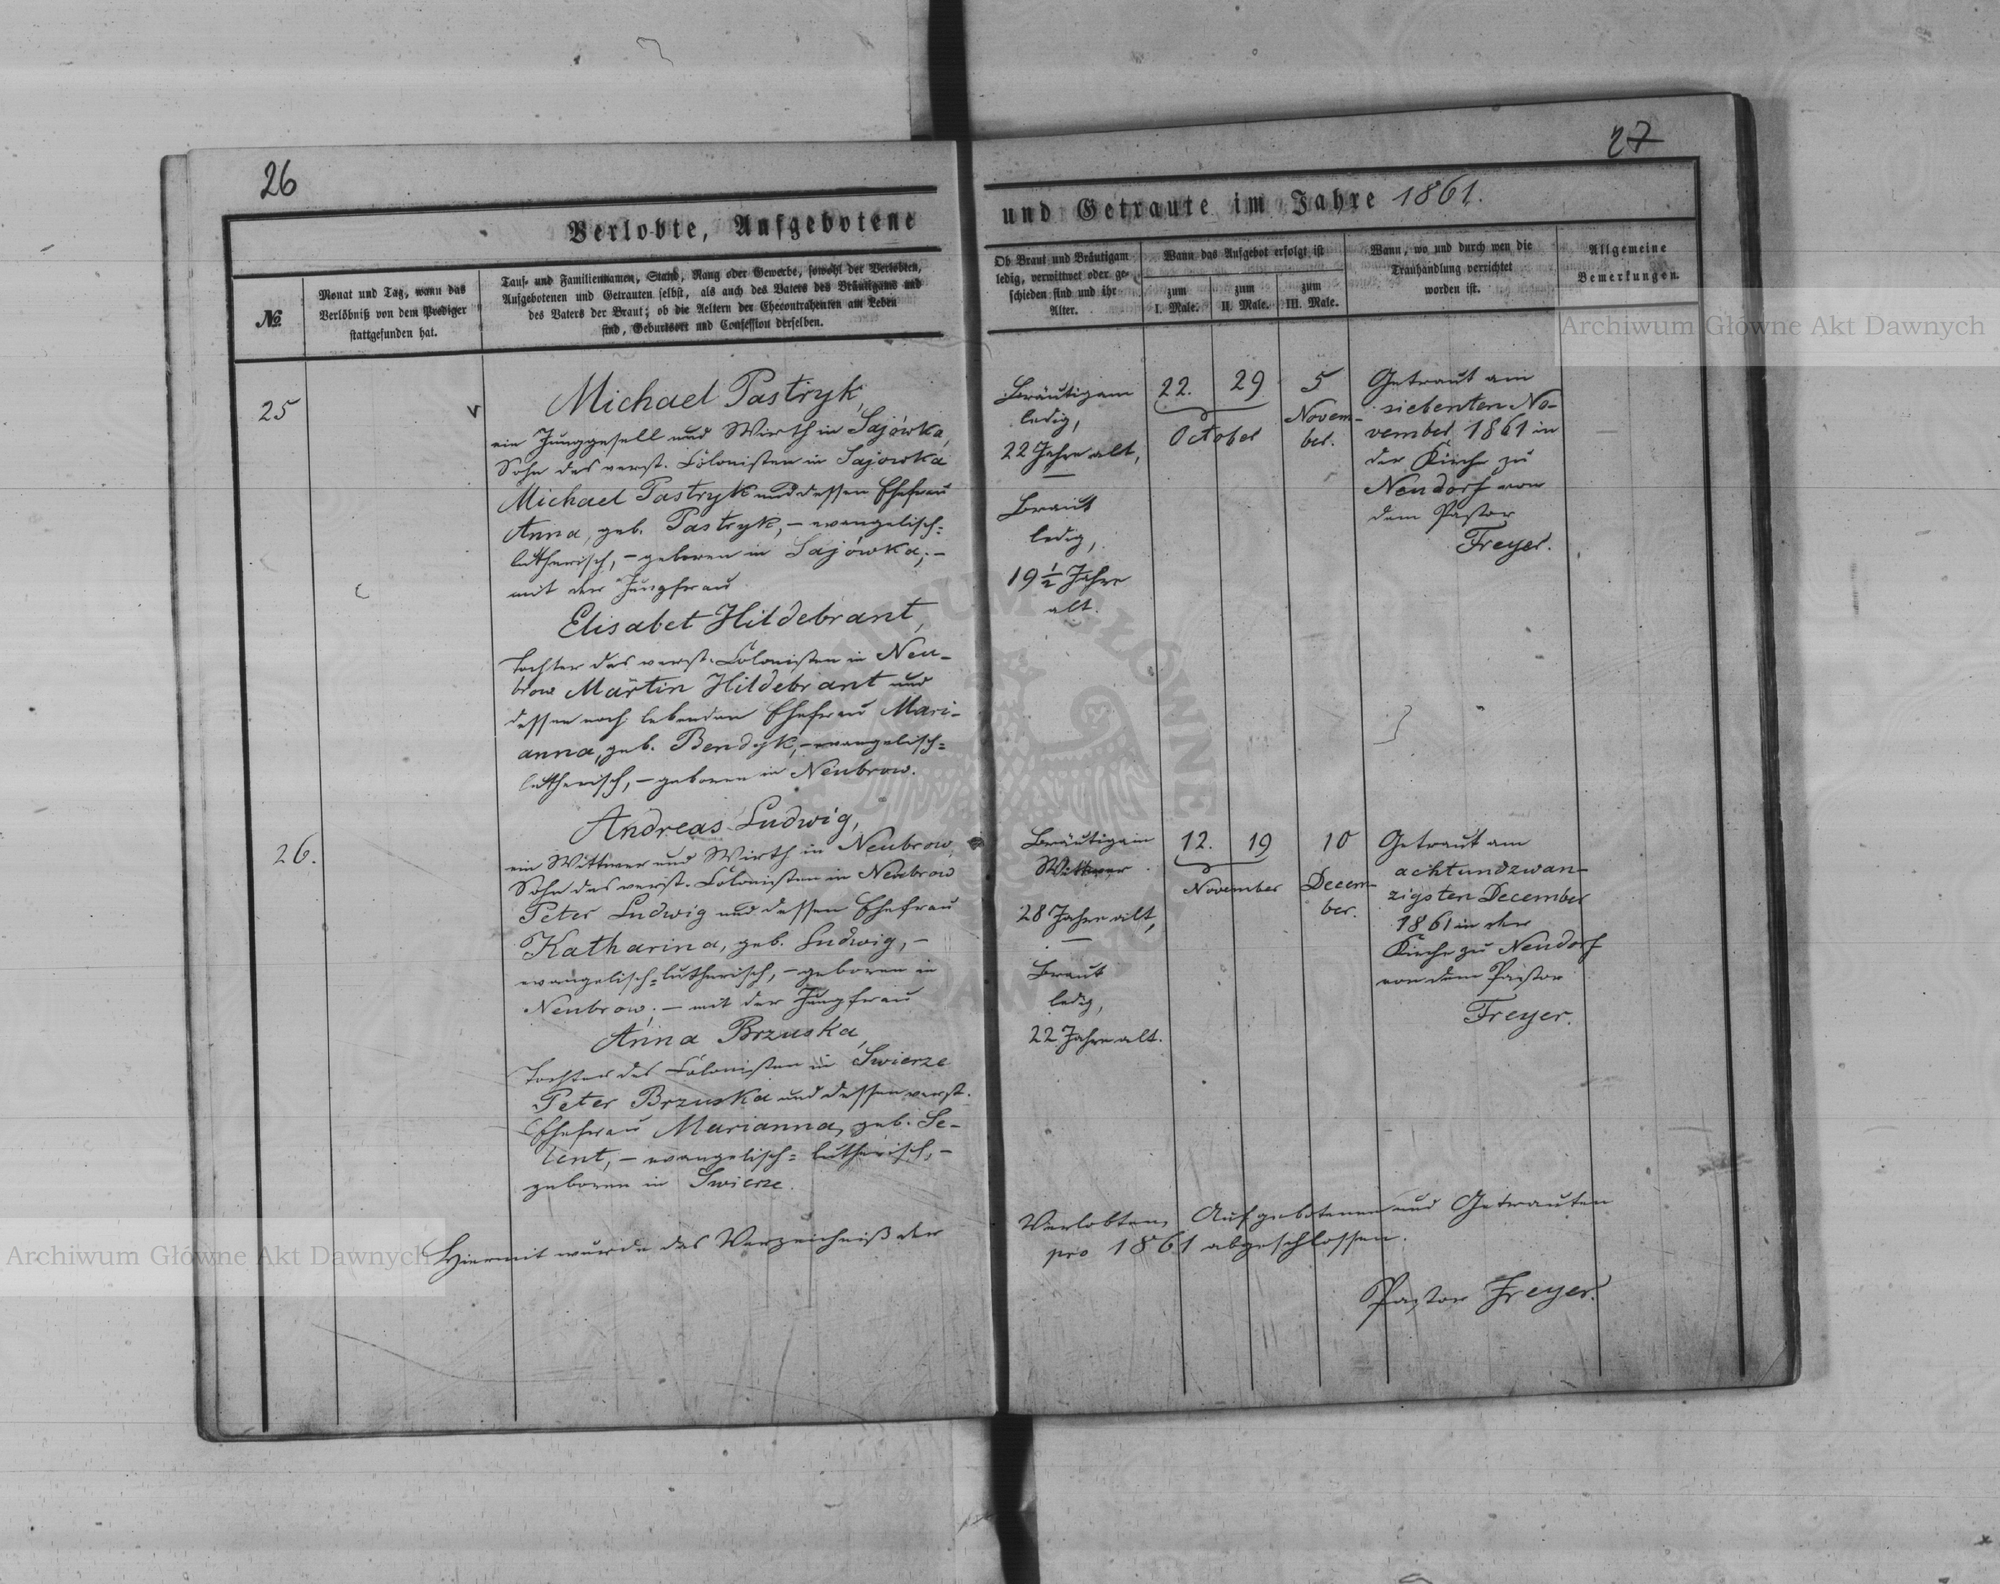 26
Verlobte, Aufgebotene
№
Monat und Tag, wann das
Verlöbniß von dem Prediger
stattgefunden hat.
Tauf- und Familiennamen, Stand, Rang oder Gewerbe, sowohl der Verlobten,
Aufgebotenen und Getrauten selbst, als auch des Vaters des Bräutigams und
des Vaters der Braut; ob die Aeltern der Ehecontrahenten am Leben
sind, Geburtsort und Confession derselben.
25
Michael Pastryk,
ein Junggesell und Wirth in Sajówka,
Sohn des verst. Colonisten in Sajowka
Michael Pastryk und dessen Ehefrau
Anna, geb. Pastryk, – evangelisch=
lutherisch, – geboren in Sajówka; –
mit der Jungfrau
Elisabet Hildebrant,
Tochter des verst. Colonisten in Neu-
brow Martin Hildebrant und
dessen noch lebenden Ehefrau Mari-
anna, geb. Bendyk, – evangelisch=
lutherisch, – geboren in Neubrow.
26.
Andreas Ludwig,
ein Wittwer und Wirth in Neubrow,
Sohn des verst. Colonisten in Neubrow
Peter Ludwig und dessen Ehefrau
Katharina, geb. Ludwig, –
evangelisch=lutherisch, – geboren in
Neubrow; – mit der Jungfrau
Anna Brzuska,
Tochter des Colonisten in Swierze
Peter Brzuska und dessen verst.
Ehefrau Marianna, geb. Se-
lent, – evangelisch= lutherisch, –
geboren in Swierze.
Hiermit wurde das Verzeichniß der
27
und Getraute im Jahre 1861.
Ob Braut und Bräutigam
ledig, verwittwet oder ge-
schieden sind und ihr
Alter.
Wann das Aufgebot erfolgt ist
zum
I. Male.
zum
II. Male.
zum
III. Male.
Wann, wo und durch wen die
Trauhandlung verrichtet
worden ist.
Allgemeine
Bemerkungen.
Bräutigam
ledig,
22 Jahre alt,
—
Braut
ledig,
19 ½ Jahre
alt.
22. 29.
October
5
Novem-
ber.
Getraut am
siebenten No-
vember 1861 in
der Kirche zu
Neudorf von
dem Pastor
Freyer.
—
Bräutigam
Wittwer
28 Jahre alt,
—
Braut
ledig,
22 Jahre alt.
12. 19
November
10
Decem-
ber.
Getraut am
achtundzwan-
zigsten December
1861 in der
Kirche zu Neudorf
von dem Pastor
Freyer.
Verlobten, Aufgebotenen und Getrauten
pro 1861 abgeschlossen.
Pastor Freyer.
Archiwum Główne Akt Dawnych
Archiwum Główne Akt Dawnych